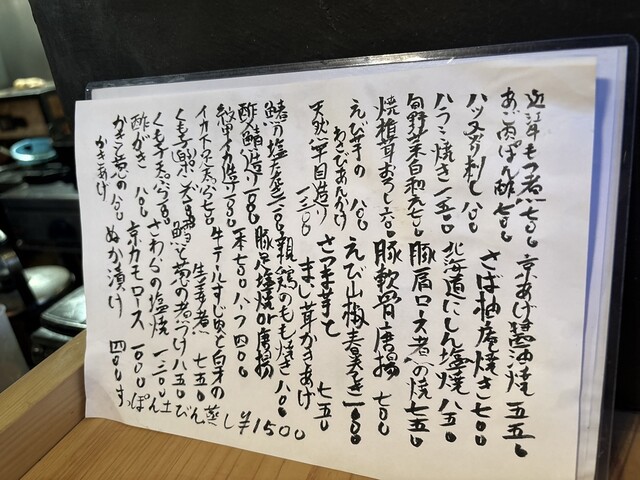 近江牛もつ煮 七〇〇 京あげ醤油焼 五五〇
あぶり肉ぽん酢 七〇〇 さば柚庵焼き 七〇〇
ハツユッケ刺し 八〇〇 北海道にしん塩焼 八五〇
ハラミ焼き 一五〇〇 豚肩ロース 焼 七五〇
旬野菜白和え 七五〇 豚軟骨唐揚 七〇〇
焼椎茸おろし 六〇〇 えび山椒春巻き 一〇〇〇
えび芋の わさびあんかけ 八〇〇 さつま芋と
天然平目造り 一三〇〇 まいし茸かきあげ 七五〇
鯖の塩 一三〇〇 親鶏のもも焼き 八〇〇
酢〆鯖造り 一〇〇〇 豚足塩焼or唐揚
紋甲イカ造り 一〇〇〇 一本 七〇〇 ハーフ 四〇〇
イカ下足天ぷら 七五〇 牛テールすじ肉と白才の
くも子ポン酢 生姜煮 七五〇
くも子天ぷら 鰯と葱の煮つけ 八五〇
酢がき 八〇〇 さわらの塩焼 一三〇〇
かきと葱の かきあげ 八〇〇 京カモロース 一〇〇〇
ぬか漬け 四〇〇
すっぽん土びん蒸し ¥1500